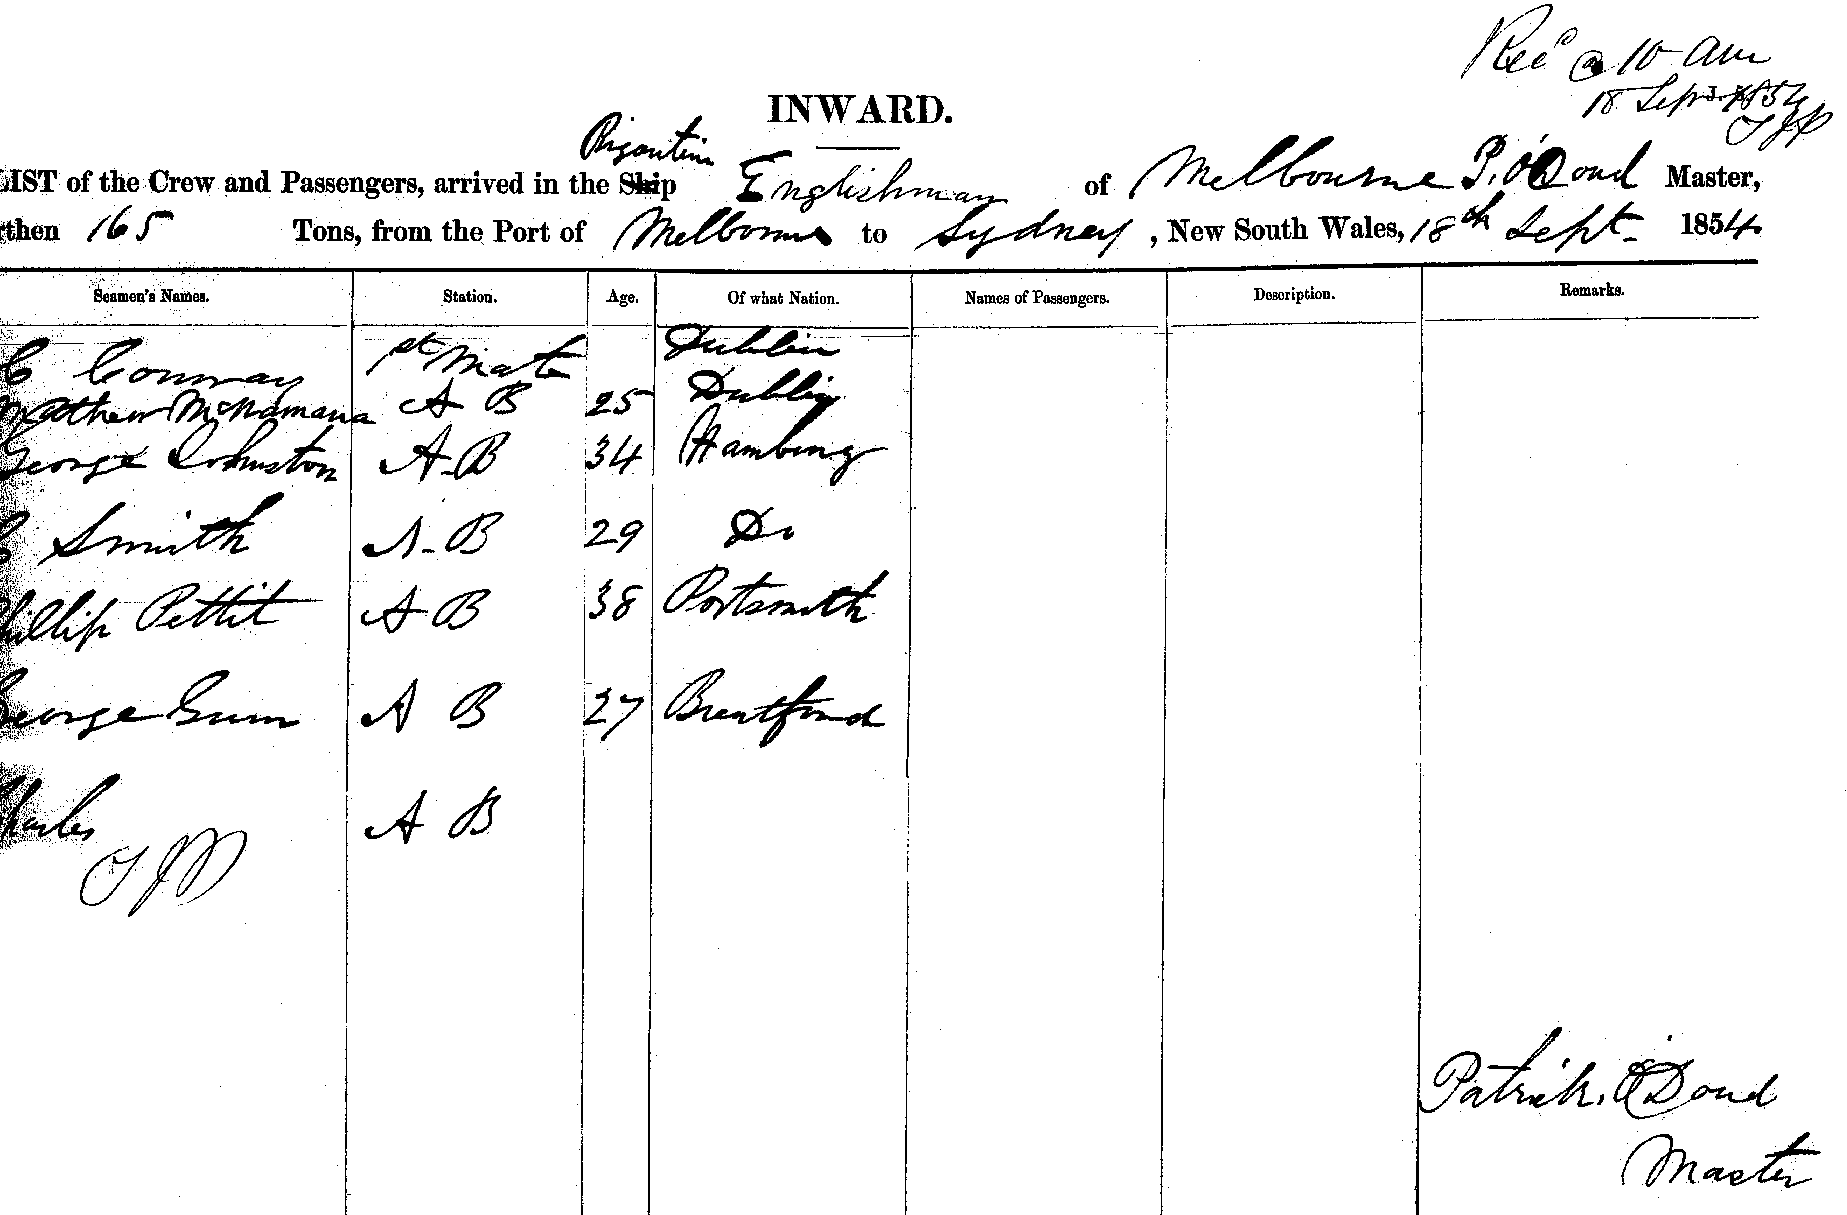 Recd @ 10 am
18 Sept 1854
INWARD.
Brigantine
LIST of the Crew and Passengers, arrived in the Ship Englishman of Melbourne P. O'Doud Master,
then 165 Tons, from the Port of Melbourne to Sydney, New South Wales, 18th Sept. 1854.
Seamen's Names. Station. Age. Of what Nation. Names of Passengers. Description. Remarks.
C Conway 1st Mate Dublin
Mathew McNamara A B 25 Dublin
George Johnston A-B 34 Hamburg
C Smith A-B 29 Do
Phillip Pettit A B 38 Portsmouth
George Gunn A B 27 Brentford
Charles A B
Patrick O'Doud
Master